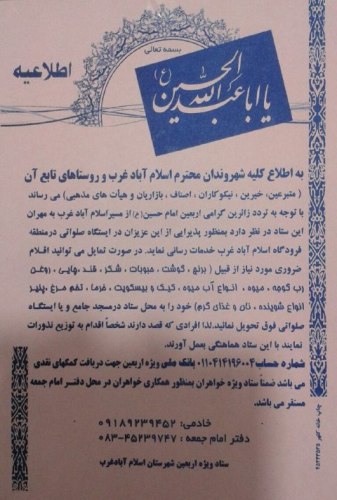 بسمه تعالی
اطلاعیه
یا اباعبدالله الحسین (ع)
به اطلاع کلیه شهروندان محترم اسلام آباد غرب و روستاهای تابع آن
( متبرعین، خیرین ، نیکوکاران ، اصناف ، بازاریان و هیأت های مذهبی) می رساند
با توجه به تردد زائرین گرامی اربعین امام حسین(ع) از مسیر اسلام آباد غرب به مهران
این ستاد در نظر دارد بمنظور پذیرایی از این عزیزان در ایستگاه صلواتی درمنطقه
فرودگاه اسلام آباد غرب خدمات رسانی نماید. در صورت تمایل می توانید اقلام
ضروری مورد نیاز از قبیل ( برنج ، گوشت ، حبوبات ، شکر ، قند ،چایی ، روغن ،
رب گوجه ، میوه ، انواع آب میوه ، کیک و بیسکویت ، خرما ، تخم مرغ ،پنیر
انواع شوینده ، نان و غذای گرم) خود را به محل ستاد درمسجد جامع و یا ایستگاه
صلواتی فوق تحویل نمائید.لذا افرادی که قصد دارند شخصاً اقدام به توزیع نذورات
نمایند با این ستاد هماهنگی بعمل آورند.
شماره حساب ۰۱۱۰۴۱۴۱۹۶۰۰۴ بانک ملی ویژه اربعین جهت دریافت کمکهای نقدی
می باشد ضمناً ستاد ویژه خواهران بمنظور همکاری خواهران در محل دفتر امام جمعه
مستقر می باشد.
خادمی: ۰۹۱۸۹۲۳۹۴۵۲
دفتر امام جمعه : ۴۵۲۳۹۷۴۷-۰۸۳
ستاد ویژه اربعین شهرستان اسلام آبادغرب
چاپ خانه